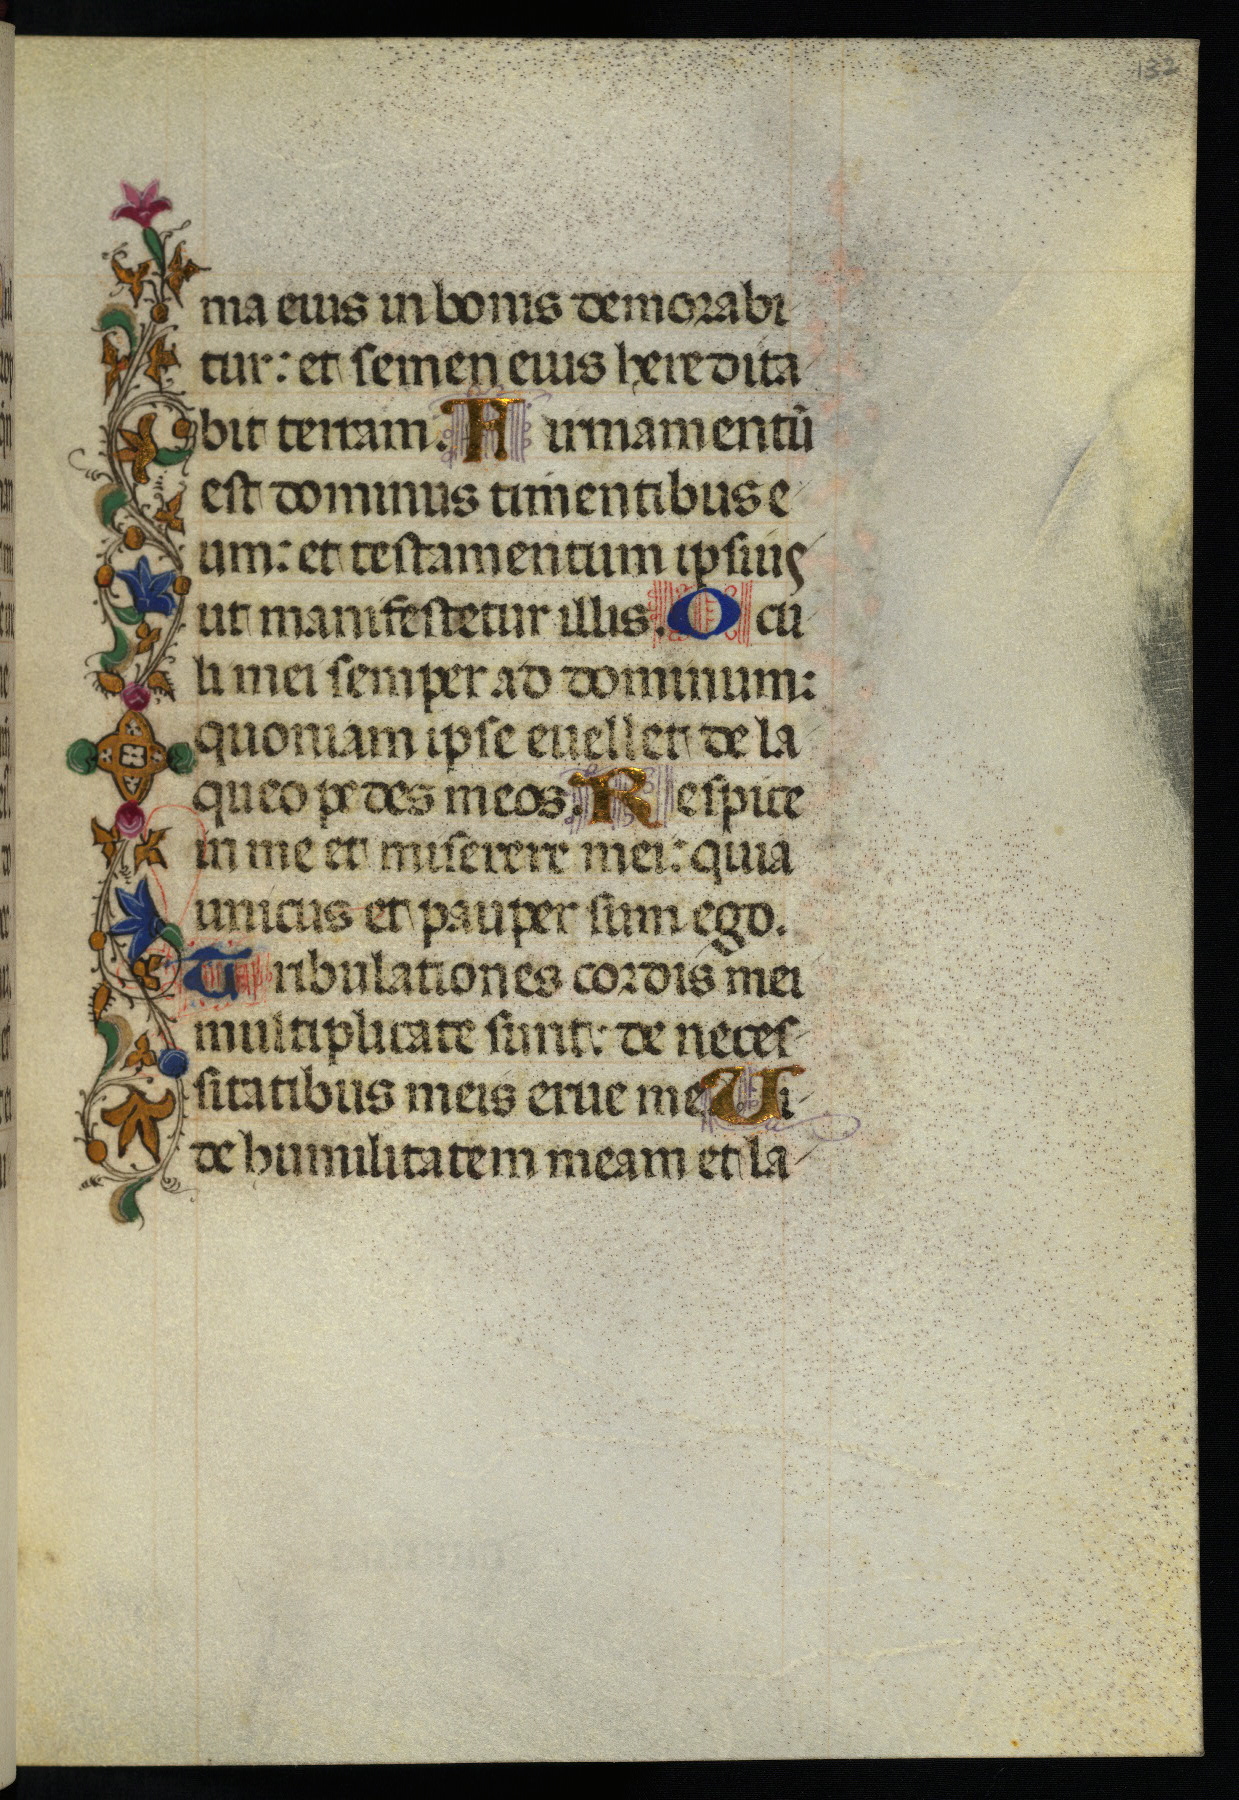 132
ma eius in bonis demorabi
tur: et semen eius heredita
bit terram. Firmamentū
est dominus timentibus e
um: et testamentum ipsius
ut manifestetur illis. Ocu
li mei semper ad dominum:
quoniam ipse euellet de la
queo pedes meos. Respice
in me et miserere mei: quia
unicus et pauper sum ego.
Tribulationes cordis mei
multiplicate sunt: de neces
sitatibus meis erue me Ui
de humilitatem meam et la